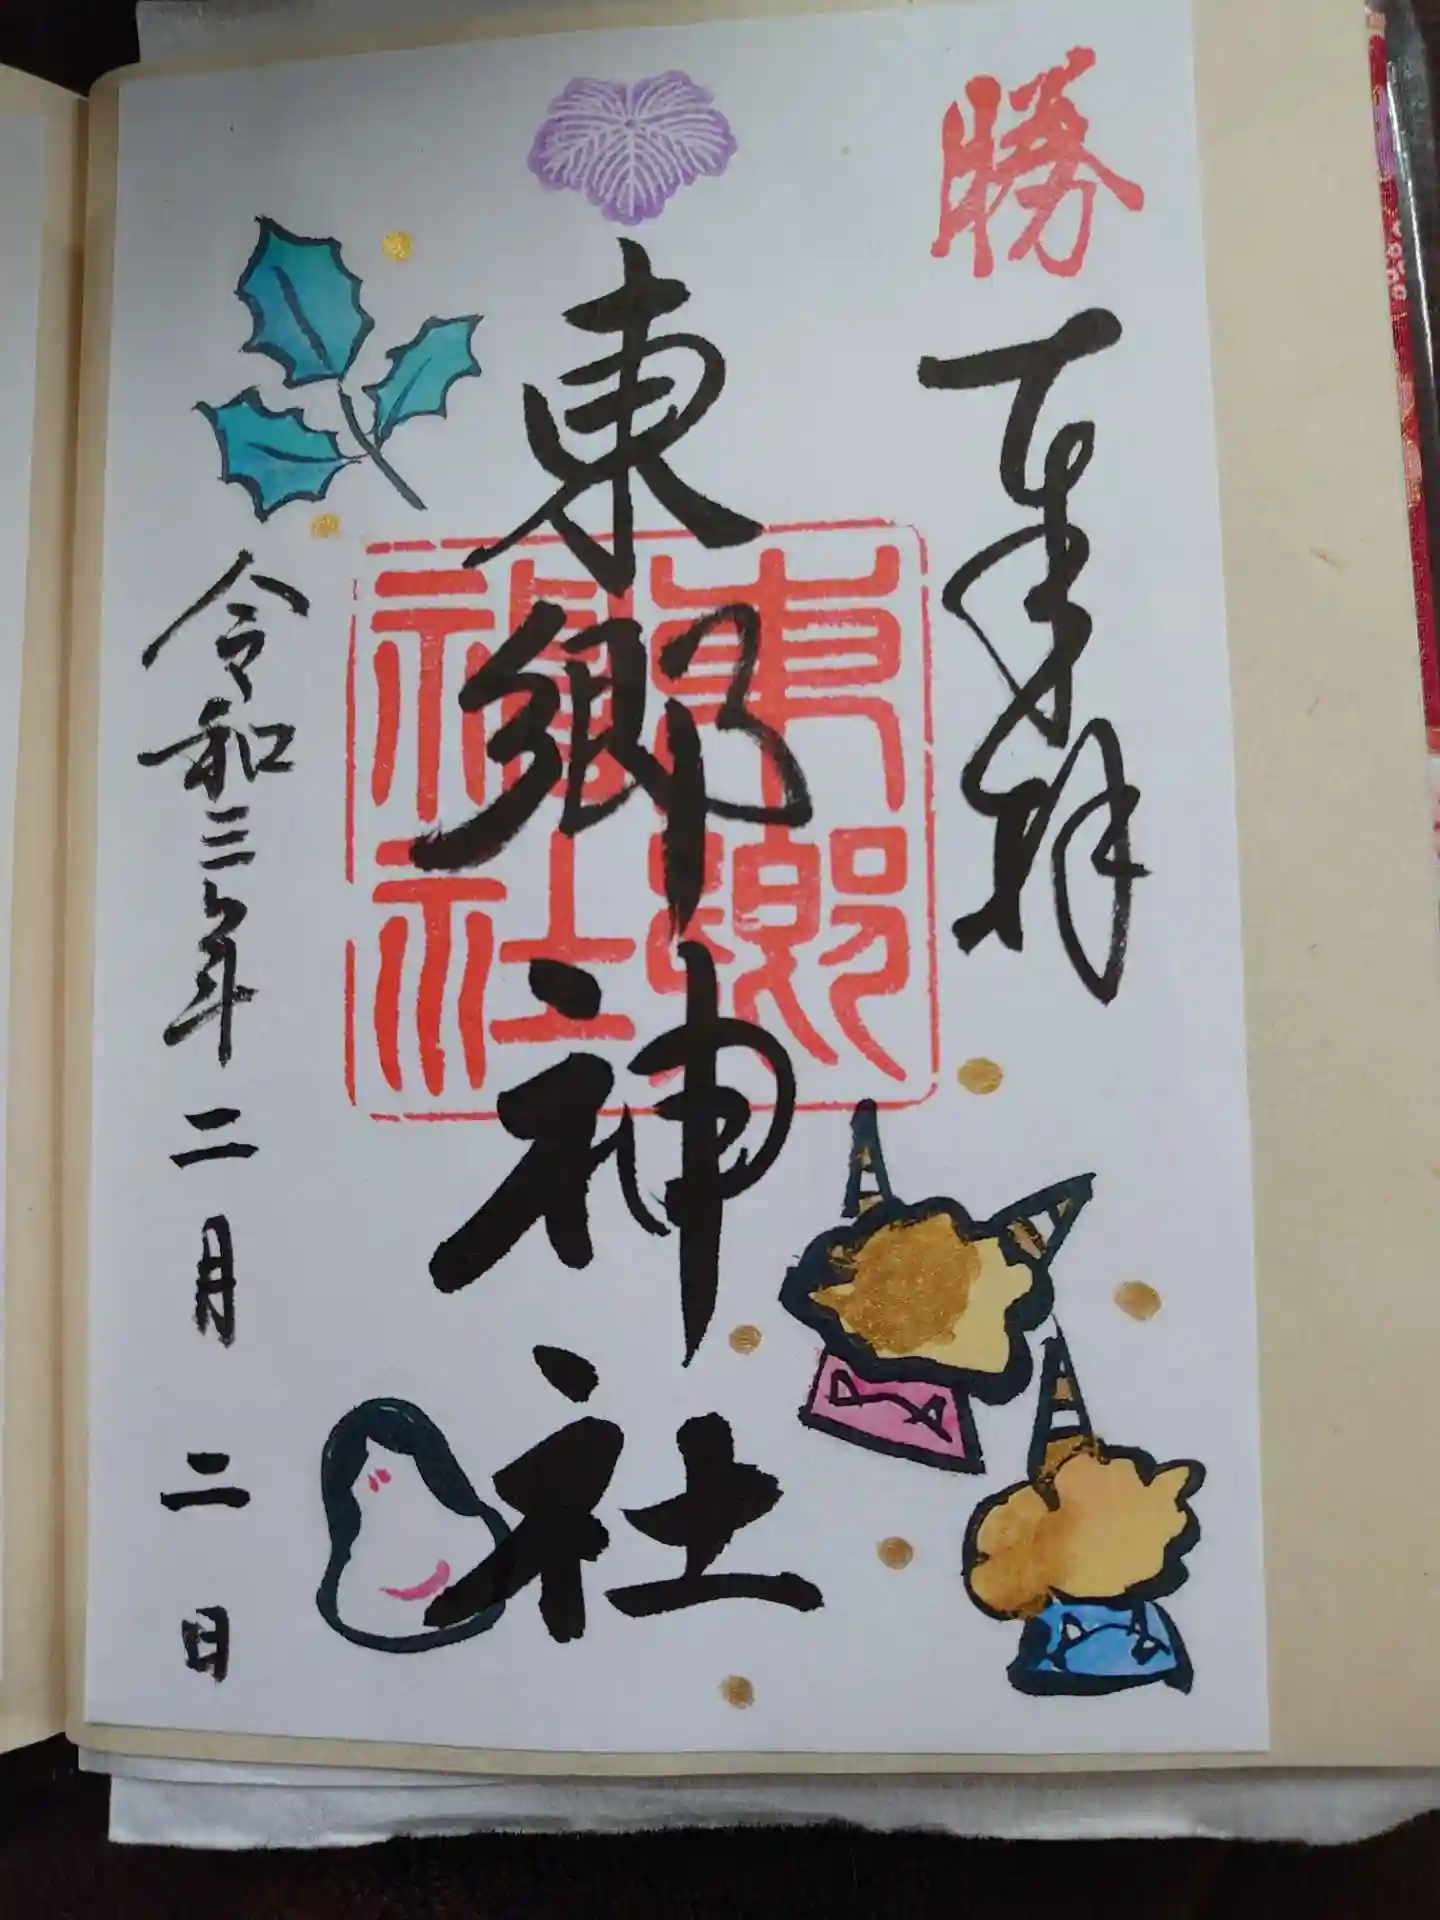 勝
奉拝
東郷神社
東郷
神社
令和三年二月二日